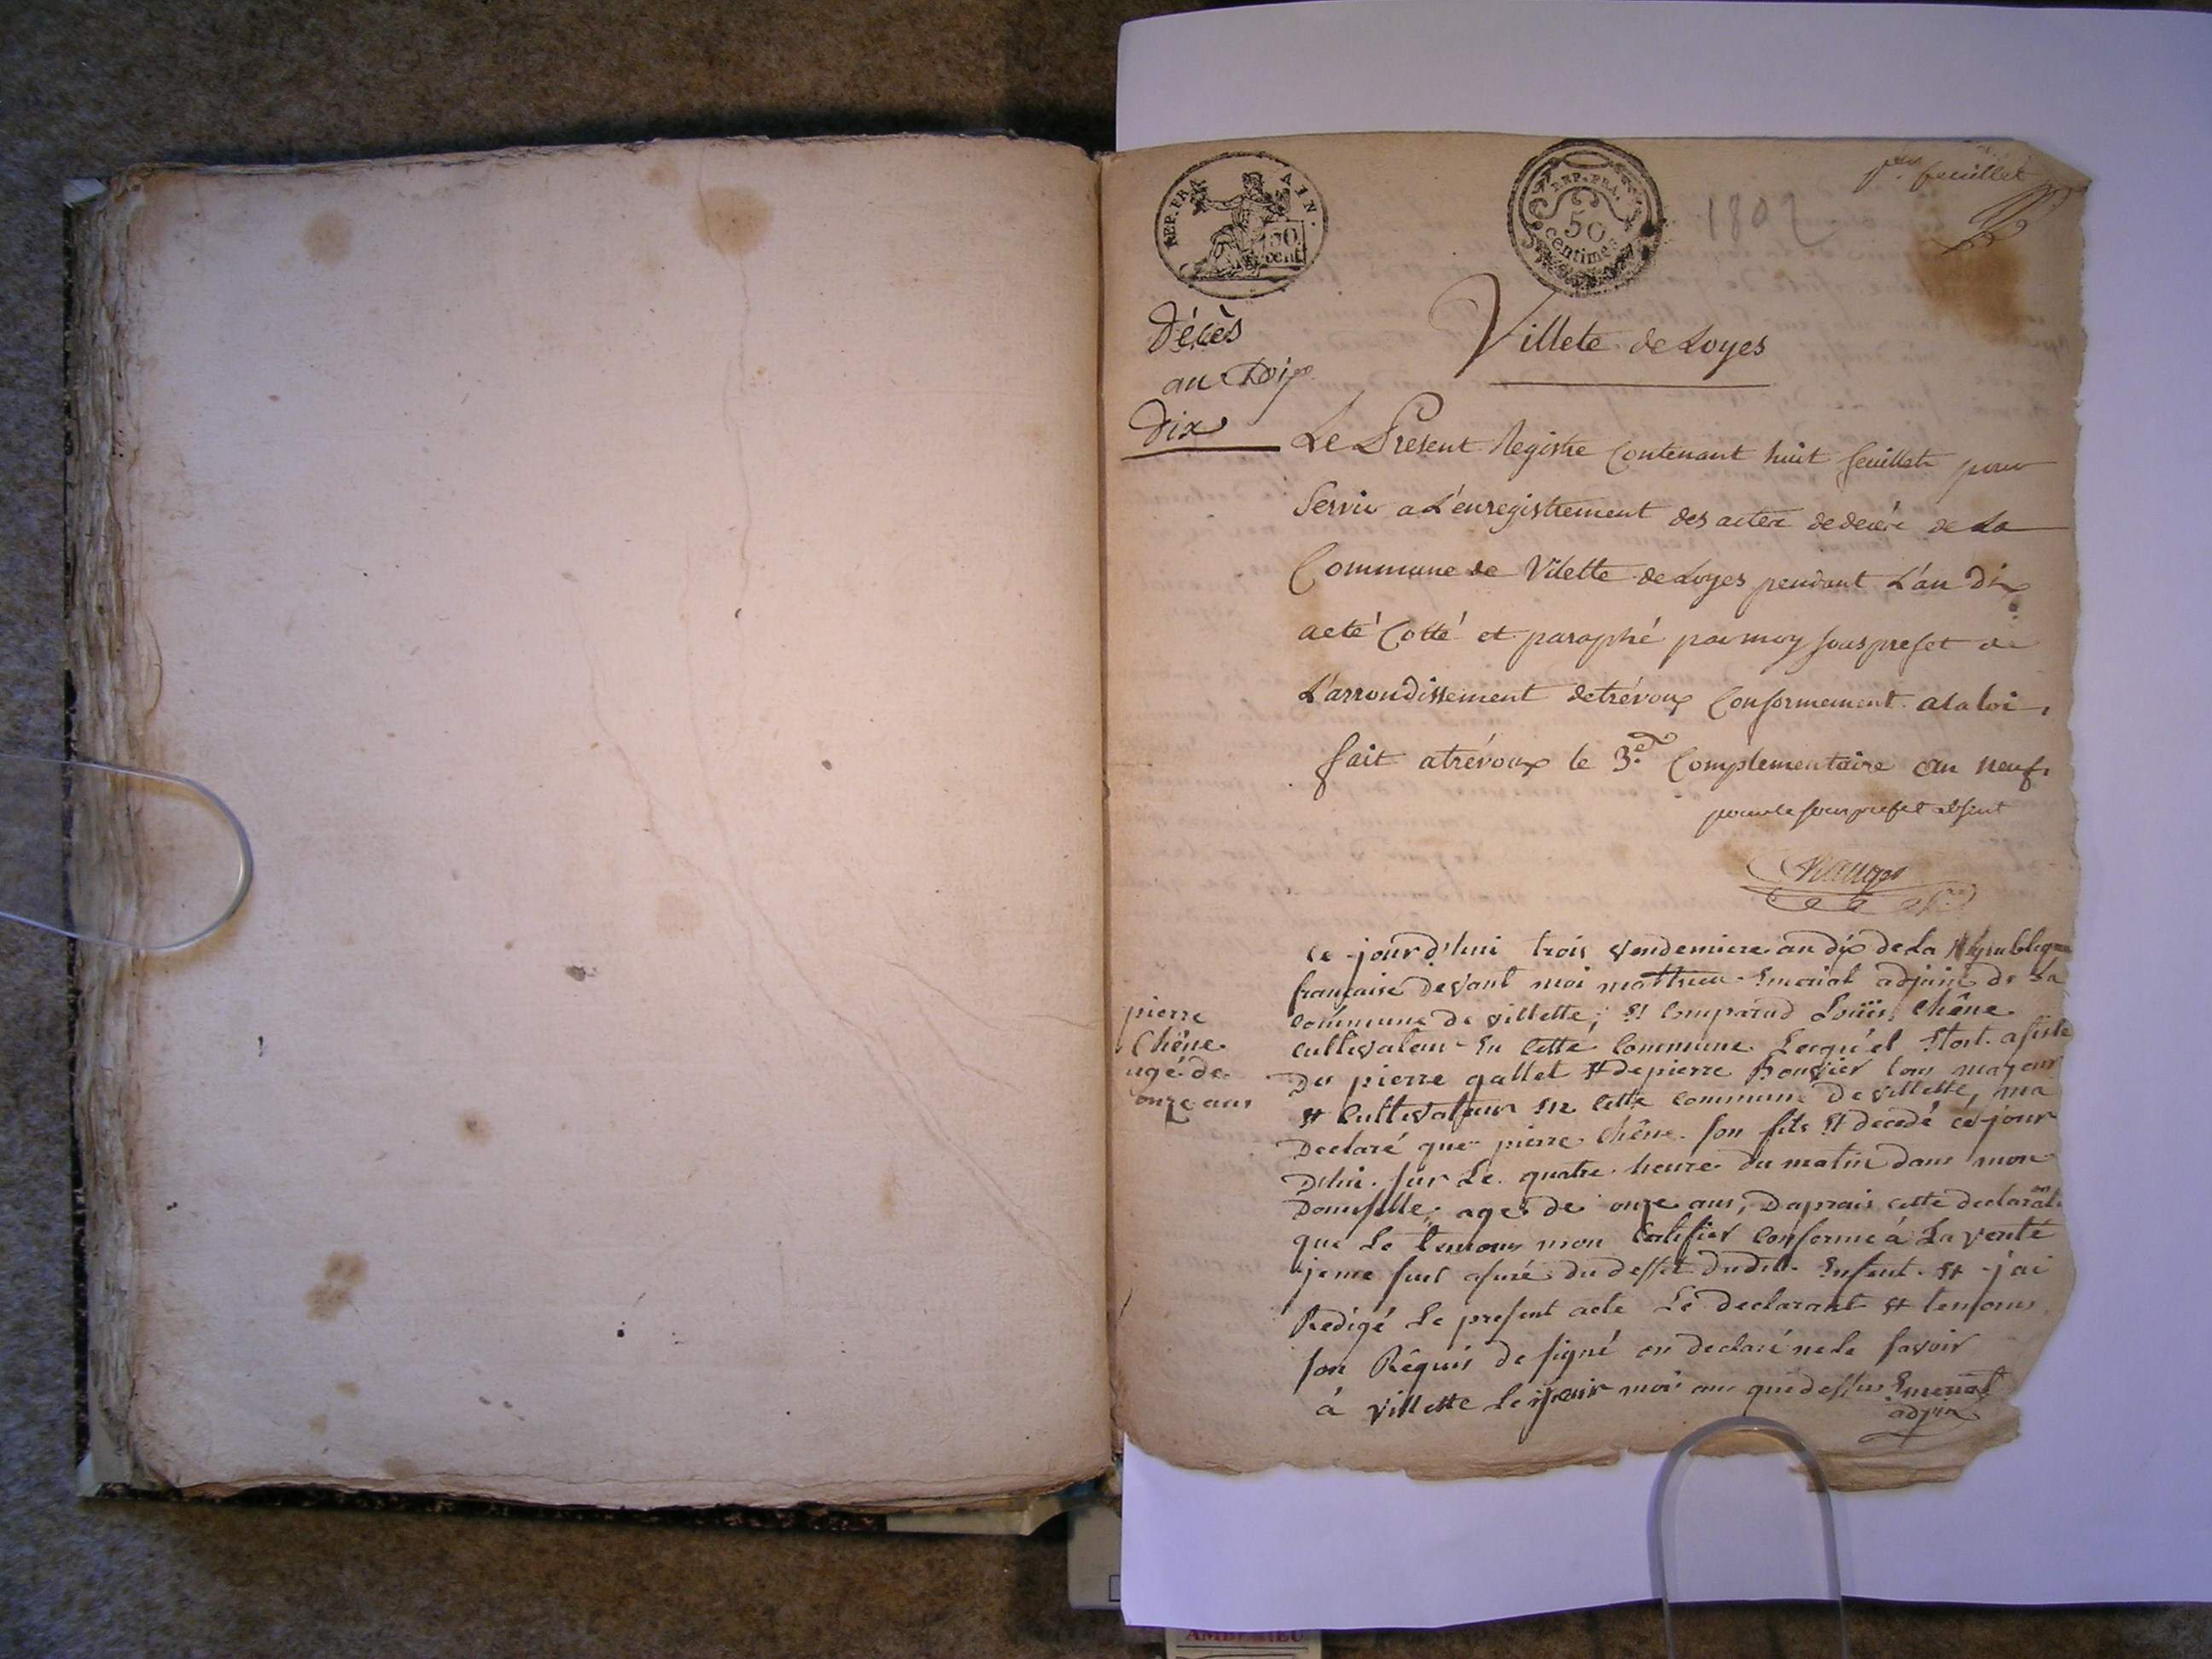 1er feuillet
REP. FRA. AIN.
50 cent
REP. FRA.
50
centimes
1802
Décès
an Dix
Dix
Villete de Loyes
Le Present Registre Contenant huit feuillets pour
Servir a L'enregistrement des actes de decés de La
Commune de Vilette de Loyes pendant L'an Dix
acté Cotté et paraphé par moy sousprefet de
L'arrondissement de trévoux Conformement a la loi,
fait a trévoux le 3.e Complementaire an neuf.
pour le sous prefet absent
pierre
Chêne
agé de
onze ans
Ce jourd'hui trois vendemiere an dix de La Republique
française devant moi mathieu adjoint de La
commune de villette, Et Comparud Louïs Chêne
cultivateur En cette Commune Lequ'el Etoit assisté
De pierre gallet Et de pierre Bouvier tous mageur
Et Cultivateur En cette commune De villette, ma
Declaré que pierre Chêne son fils Et decedé ce jour
D'hui sur Le quatre heure du matin dans mon
Domisille, age de onze ans, Daprais cette declarat.on
que Le temoins mon Certifier Conforme à La verité
je me suis asuré du desset dudit Enfent Et j'ai
Redigé Le present acte Le Declarant Et temoins
son Réquis de signé on declaré ne le savoir
à villette Le jour mois an que dessus
adjoin
AMBERIEU